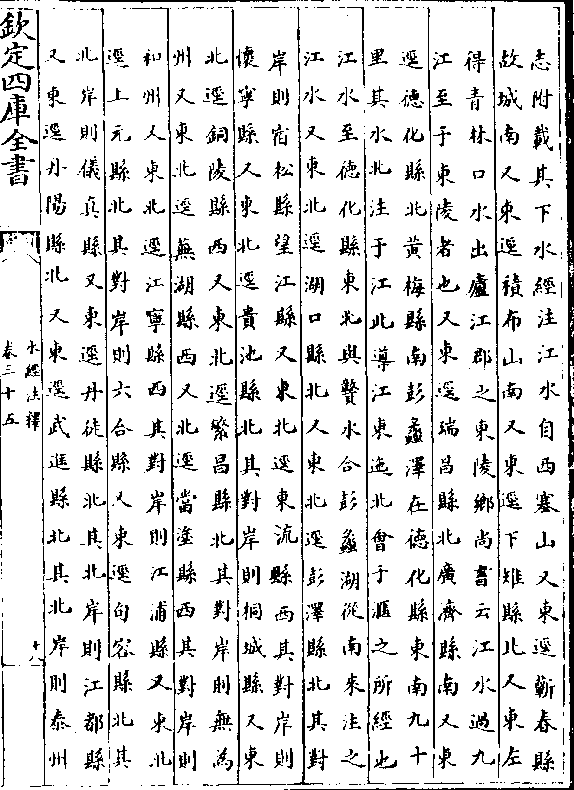 志附載其下水經注江水自西塞山又東逕蘄春縣
故城南又東逕積布山南又東逕下雉縣北又東左
得青林口水出廬江郡之東陵鄉尚書云江水過九
江至于東陵者也又東逕瑞昌縣北廣濟縣南又東
逕德化縣北黃梅縣南彭蠡澤在德化縣東南九十
里其水北注于江此導江東迤北會于滙之所經也
江水至德化縣東北與贑水合彭蠡湖從南來注之
江水又東北逕湖口縣北又東北逕彭澤縣北其對
岸則宿松縣望江縣又東北逕東流縣西其對岸則
懷寧縣又東北逕貴池縣北其對岸則桐城縣又東
北逕銅陵縣西又東北逕繁昌縣北其對岸則無為
州又東北逕蕪湖縣西又北逕當塗縣西其對岸則
和州又東北逕江寧縣西其對岸則江浦縣又東北
逕上元縣北其對岸則六合縣又東逕句容縣北其
北岸則儀真縣又東逕丹徒縣北其北岸則江都縣
又東逕丹陽縣北又東逕武進縣北其北岸則泰州
欽定四庫全書
水經注釋
卷三十五
十八